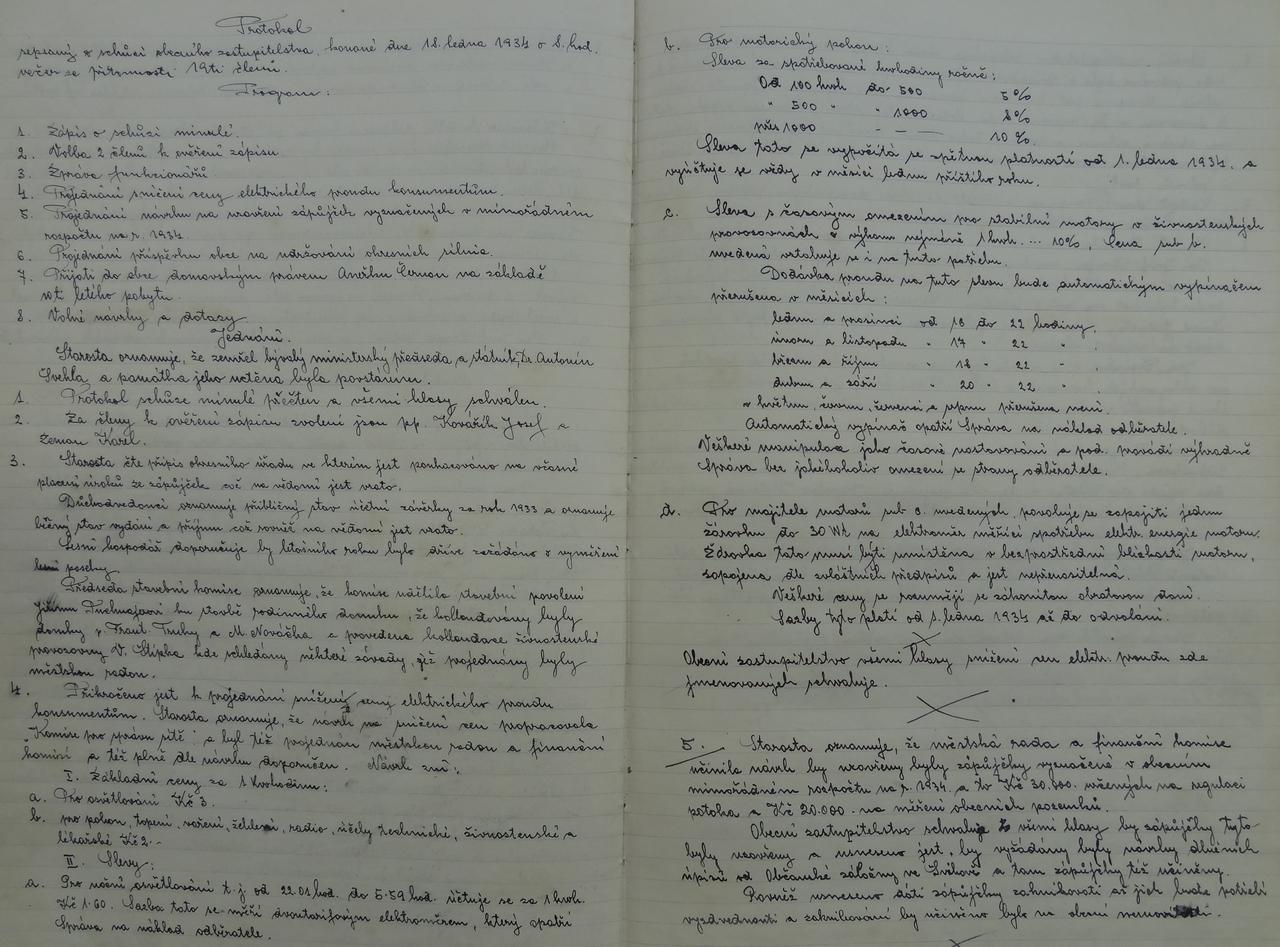 Protokol
sepsaný o schůzi obecního zastupitelstva, konané dne 18. ledna 1934 o 8. hod.
večer za přítomnosti 19ti členů.
Program:
1. Zápis o schůzi minulé.
2. Volba 2 členů k ověření zápisu
3. Zpráva funkcionářů
4. Projednání snížení ceny elektrického proudu konsumentům.
5. Projednání návrhu na uzavření zápůjček vyznačených v mimořádném
rozpočtu na r. 1934.
6. Projednání příspěvku obce na udržování okresních silnic.
7. Přijatí do obce domovským právem Anežku Černou na základě
10ti letého pobytu.
8. Volné návrhy a dotazy
Jednání.
Starosta oznamuje, že zemřel bývalý ministerský předseda a státník, Dr. Antonín
Švehla, a památka jeho uctěna byla povstáním.
1. Protokol schůze minulé přečten a všemi hlasy schválen.
2. Za členy k ověření zápisu zvoleni jsou pp. Kovářík Josef a
Zeman Karel.
3. Starosta čte přípis okresního úřadu ve kterém jest poukazováno na včasné
placení úroků ze zápůjček což na vědomí jest vzato.
Důchodvedoucí oznamuje přibližný stav účetní závěrky za rok 1933 a oznamuje
běžný stav vydání a příjmu což rovněž na vědomí jest vzato.
Lesní hospodář doporučuje by letošního roku bylo dříve zažádáno o vyměření
lesní paseky.
Předseda stavební komise oznamuje, že komise udělila stavební povolení
ku stavbě rodinného domku, že kollaudovány byly
domky p. Frant. Truhy a M. Nováčka a provedena kollaudace živnostenské
provozovny V. Štípka kde shledány některé závady, jež projednány byly
městskou radou.
4. Přikročeno jest k projednání snížení ceny elektrického proudu
konsumentům. Starosta oznamuje, že návrh na snížení cen propracovala
Komise pro správu sítě a byl též projednán městskou radou a finanční
komisí a též plně dle návrhu doporučen. Návrh zní:
I. Základní ceny za 1 kwhodinu:
a. Pro osvětlování Kč 3.
b. pro pohon, topení, vaření, žehlení, radio, účely technické, živnostenské a
lékařské Kč 2.-
II. Slevy:
a. Pro noční osvětlování t. j. od 22.01 hod. do 5.59 hod. účtuje se za 1 kwh.
Kč 1.60. Sazba tato se měří dvoutarifovým elektroměrem, který opatří
Správa na náklad odběratele.
b. Pro motorický pohon:
Sleva za spotřebované kwhodiny ročně:
Od 100 kwh do 500 5 %
" 500 " " 1000 8 %
přes 1000 - — — 10 %.
Sleva tato se vypočítá se zpětnou platností od 1. ledna 1934. a
vyúčtuje se vždy v měsíci lednu příštího roku.
c. Sleva s časovým omezením pro stabilní motory v živnostenských
provozovnách o výkonu nejméně 1 kwh. ... 10%, Cena sub b.
uvedená vztahuje se i na tuto potřebu.
Dodávka proudu na tuto slevu bude automatickým vypínačem
přerušena v měsících:
lednu a prosinci od 16 do 22 hodiny,
únoru a listopadu " 17 " 22 " .
březnu a říjnu " 18 " 22 " .
dubnu a září " 20 " 22 " .
v květnu, červnu, červenci a srpnu přerušena není.
Automatický vypínač opatří Správa na náklad odběratele.
Veškeré manipulace jako časové nastavování a pod. provádí výhradně
Správa bez jakéhokoliv omezení se strany odběratele.
d. Pro majitele motorů sub c. uvedených, povoluje se zapojiti jednu
žárovku do 30 Wt. na elektroměr měřící spotřebu elektr. energie motoru.
Žárovka tato musí býti umístěna v bezprostřední blízkosti motoru,
zapojena dle zvláštních předpisů a jest nepřenositelná.
Veškeré ceny se rozumějí se zákonitou obratovou daní.
Sazby tyto platí od 1. ledna 1934 až do odvolání.
Obecní zastupitelstvo všemi hlasy snížení cen elektr. proudu zde
jmenovaných schvaluje.
5. Starosta oznamuje, že městská rada a finanční komise
učinila návrh by uzavřeny byly zápůjčky vyznačené v obecním
mimořádném rozpočtu na r. 1934. a to Kč 30.000. určených na regulaci
potoka a Kč 20.000. na měření obecních pozemků.
Obecní zastupitelstvo schvaluje všemi hlasy by zápůjčky tyto
byly uzavřeny a usneseno jest, by vyžádány byly návrhy dlužních
úpisů od Občanské záložny ve a tam zápůjčky též učiněny.
Rovněž usneseno dáti zápůjčky zaknihovati až jich bude potřebí
vyzdvednouti a zaknihování by učiněno bylo na obecní